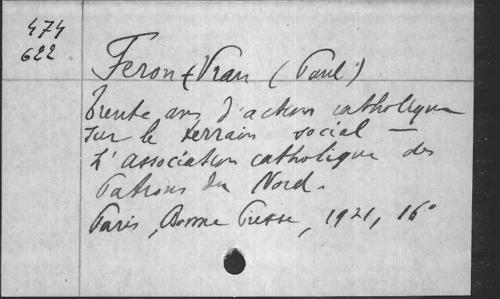 474
622
Feron-Vrau (Paul)
Trente ans d'action catholique
sur le terrain social —
L'Association catholique des
Patrons du Nord.
Paris, Bonne Presse, 1921, 16°